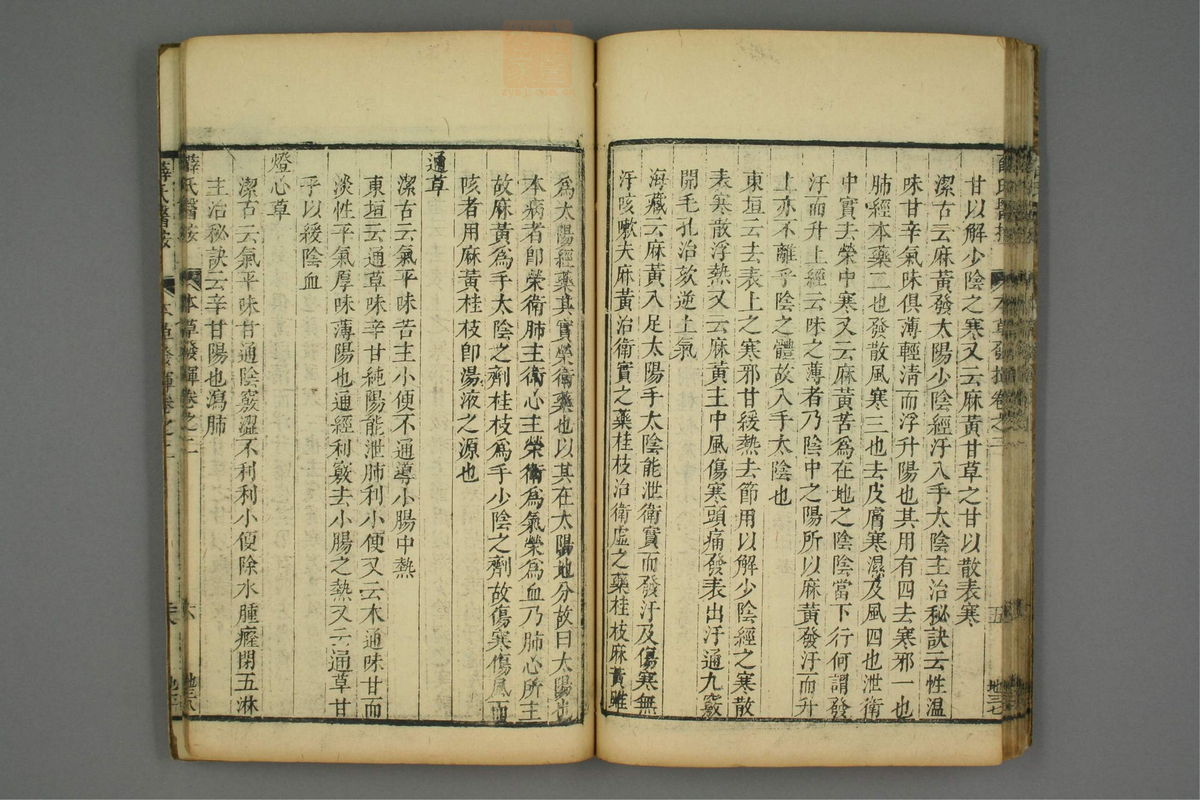 甘以解少陰之寒又云麻黃甘草之甘以散表寒
潔古云麻黃發太陽少陰經汗入手太陰主治秘訣云性溫
味甘辛氣味俱薄輕清而浮升陽也其用有四去寒邪一也
肺經本藥二也發散風寒三也去皮膚寒濕及風四也泄衛
中實去榮中寒又云麻黃苦爲在地之陰陰當下行何謂發
汗而升上經云味之薄者乃陰中之陽所以麻黃發汗而升
上亦不離乎陰之體故入手太陰也
東垣云去表上之寒邪甘緩熱去節用以解少陰經之寒散
表寒散浮熱又云麻黃主中風傷寒頭痛發表出汗通九竅
開毛孔治欬逆上氣
海藏云麻黃入足太陽手太陰能泄衛實而發汗及傷寒無
汗咳嗽夫麻黃治衛實之藥桂枝治衛虛之藥桂枝麻黃雖
爲太陽經藥其實榮衛藥也以其在太陽地分故曰太陽也
本病者卽榮衛肺主衛心主榮衛爲氣榮爲血乃肺心所主
故麻黃爲手太陰之劑桂枝爲手少陰之劑故傷寒傷風而
咳者用麻黃桂枝卽湯液之源也
通草
潔古云氣平味苦主小便不通導小腸中熱
東垣云通草味辛甘純陽能泄肺利小便又云木通味甘而
淡性平氣厚味薄陽也通經利竅去小腸之熱又云通草甘
平以緩陰血
燈心草
潔古云氣平味甘通陰竅澀不利利小便除水腫癃閉五淋
主治秘訣云辛甘陽也瀉肺
薛氏醫按 本草發揮卷之二 六